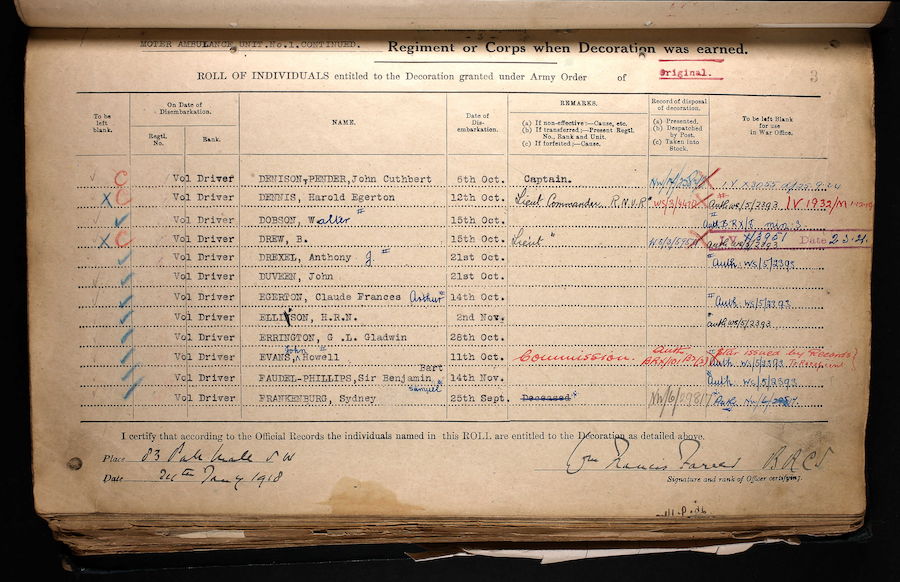 - 3 -
MOTER AMBULANCE UNIT.No.1.CONTINUED. Regiment or Corps when Decoration was earned.
ROLL OF INDIVIDUALS entitled to the Decoration granted under Army Order of Original. 3
To be left blank. On Date of Disembarkation. Regtl. No. Rank. NAME. Date of Disembarkation. REMARKS. (a) If non-effective:—Cause, etc. (b) If transferred:—Present Regtl. No., Rank and Unit. (c) If forfeited:—Cause. Record of disposal of decoration. (a) Presented. (b) Despatched by Post. (c) Taken into Stock. To be left Blank for use in War Office.
C Vol Driver DENISON-PENDER, John Cuthbert 6th Oct. Captain.
X C Vol Driver DENNIS, Harold Egerton 12th Oct. Lieut Commander R.N.V.R. Auth WS/5/2393 IV 1932/M
Vol Driver DOBSON, Walter 15th Oct.
X C Vol Driver DREW, B. 15th Oct. Lieut " Auth WS/5/2393 Date 2.3.21
Vol Driver DREXEL, Anthony J 21st Oct. Auth WS/5/2393
Vol Driver DUVEEN, John 21st Oct.
Vol Driver EGERTON, Claude Frances Arthur 14th Oct. Auth WS/5/2393
Vol Driver ELLISON, H.R.N. 2nd Nov. Auth WS/5/2393
Vol Driver ERRINGTON, G .L. Gladwin 28th Oct.
Vol Driver EVANS, John Howell 11th Oct. Commission. Auth Star issued by Records Auth WS/5/2393
Vol Driver FAUDEL-PHILLIPS, Sir Benjamin Samuel Bart 14th Nov. Auth WS/5/2393
Vol Driver FRANKENBURG, Sydney 25th Sept. Deceased NW/6/29817 Auth
I certify that according to the Official Records the individuals named in this ROLL are entitled to the Decoration as detailed above.
Place 83 Pall Mall S W
Date 24th Jany 1918 Francis Farrer B R C S
Signature and rank of Officer certifying.